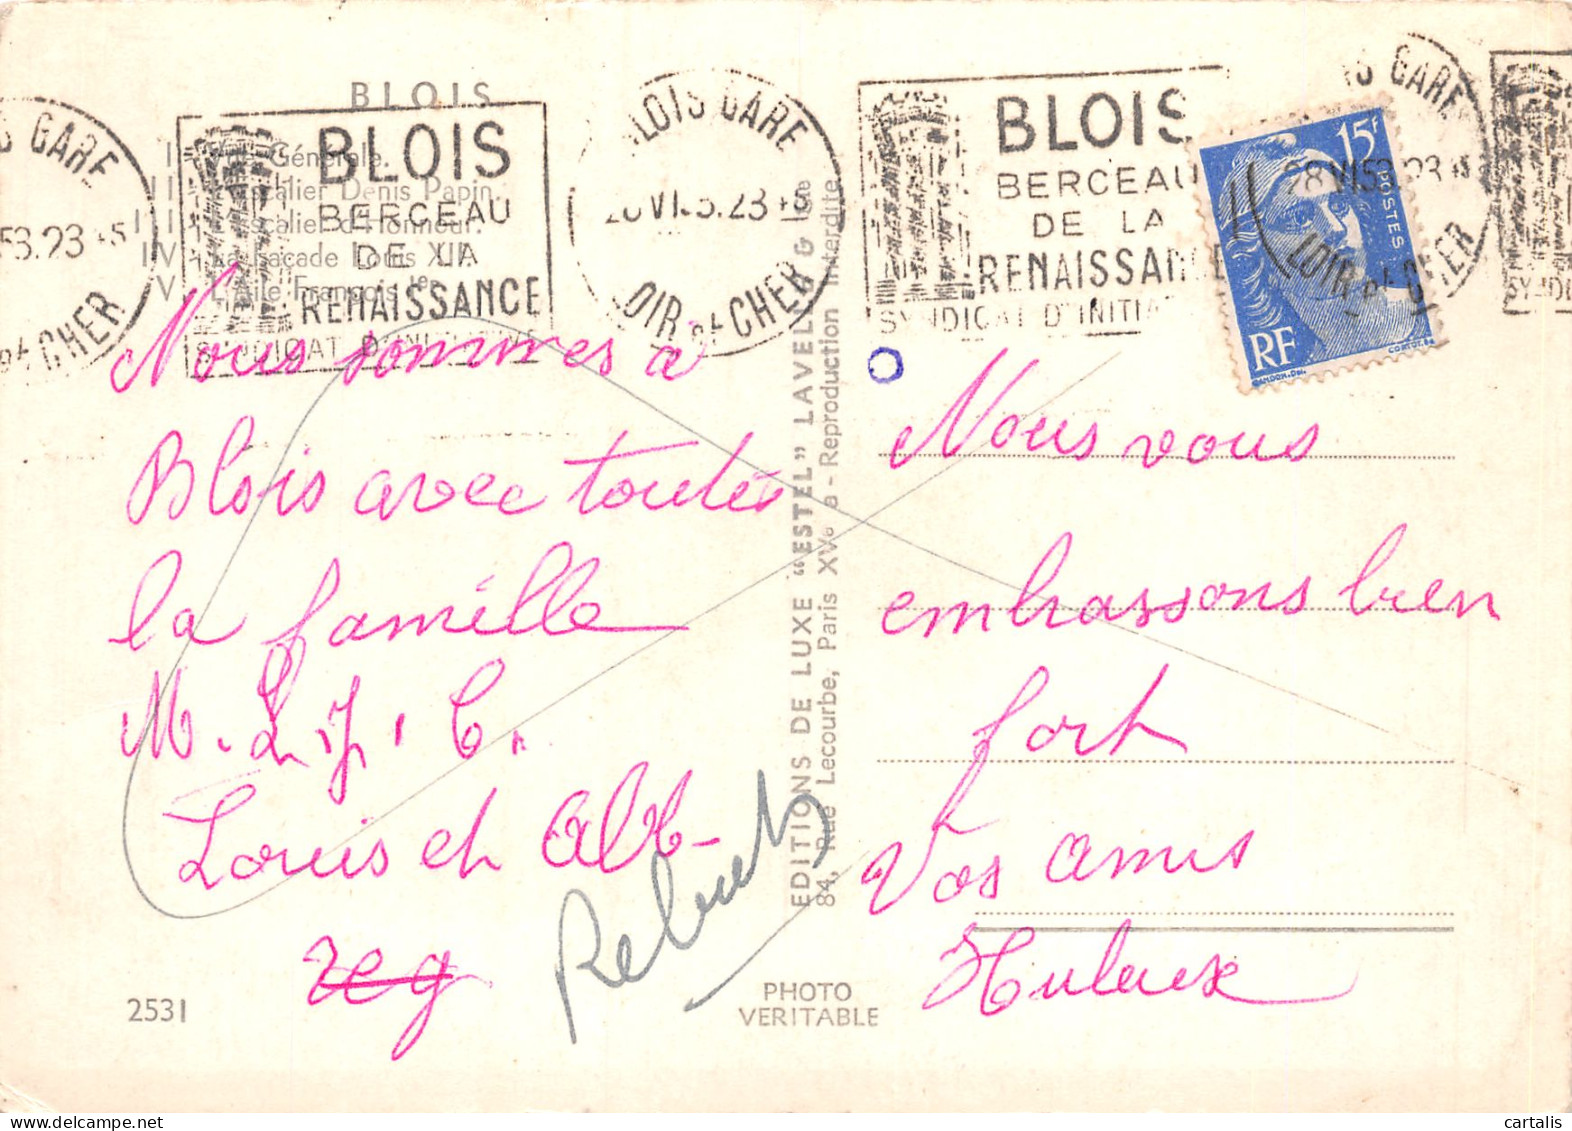 BLOIS
I - Vue Générale.
II - Escalier Denis Papin
III - Escalier d'Honneur.
IV - La Façade Louis XII.
V - L'Aile François Ier
BLOIS
BERCEAU
DE LA
RENAISSANCE
SYNDICAT D'INITIATIVE
BLOIS GARE
28 VI 53.23 45
LOIR et CHER
BLOIS
BERCEAU
DE LA
RENAISSANCE
SYNDICAT D'INITIA
GARE
53.23 45
et CHER
IS GARE
28 VI 53.23 45
LOIR et CHER
15f
POSTES
RF
GANDON.Del.
Nous sommes à
Blois avec toutes
la famille
M. L. J. C.
Louis et Alb-
2531
Rebuts
EDITIONS DE LUXE “ESTEL” LAVELLE & Cie
84, Rue Lecourbe, Paris XVe - Reproduction Interdite
PHOTO
VERITABLE
Nous vous
embrassons bien
fort
Vos amis
cartalis
www.delcampe.net